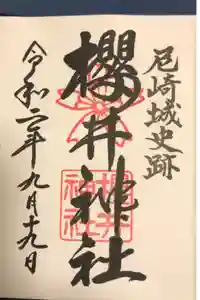 尼崎城史跡
櫻井神社
櫻井神社
令和二年九月十九日